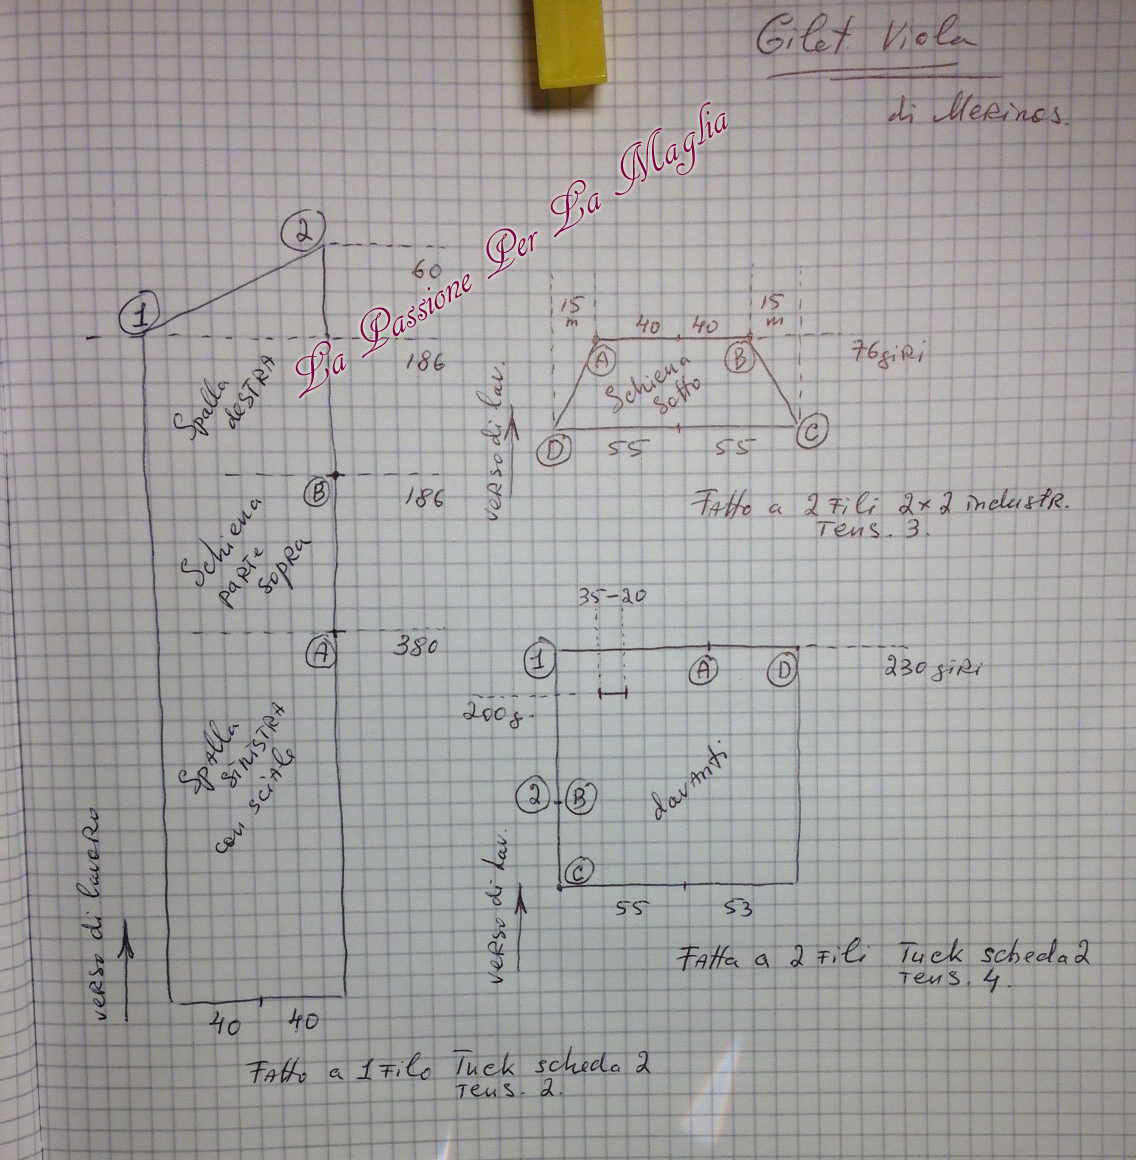 Gilet Viola
di Merinos.
La Passione Per La Maglia
2
60
1
186
Spalla
destra
B
186
Schiena
parte
sopra
A
380
Spalla
sinistra
con sciale
verso di lavoro
40 40
Fatto a 1 Filo Tuck scheda 2
Tens. 2.
15 15
m m
40 40
A B
76 giri
Schiena
sotto
verso di lav.
D C
55 55
Fatto a 2 Fili 2x2 industr.
Tens. 3.
35-20
1 A D
230 giri
200g.
davanti
2 B
C
verso di lav.
55 53
Fatta a 2 Fili Tuck scheda 2
Tens. 4.